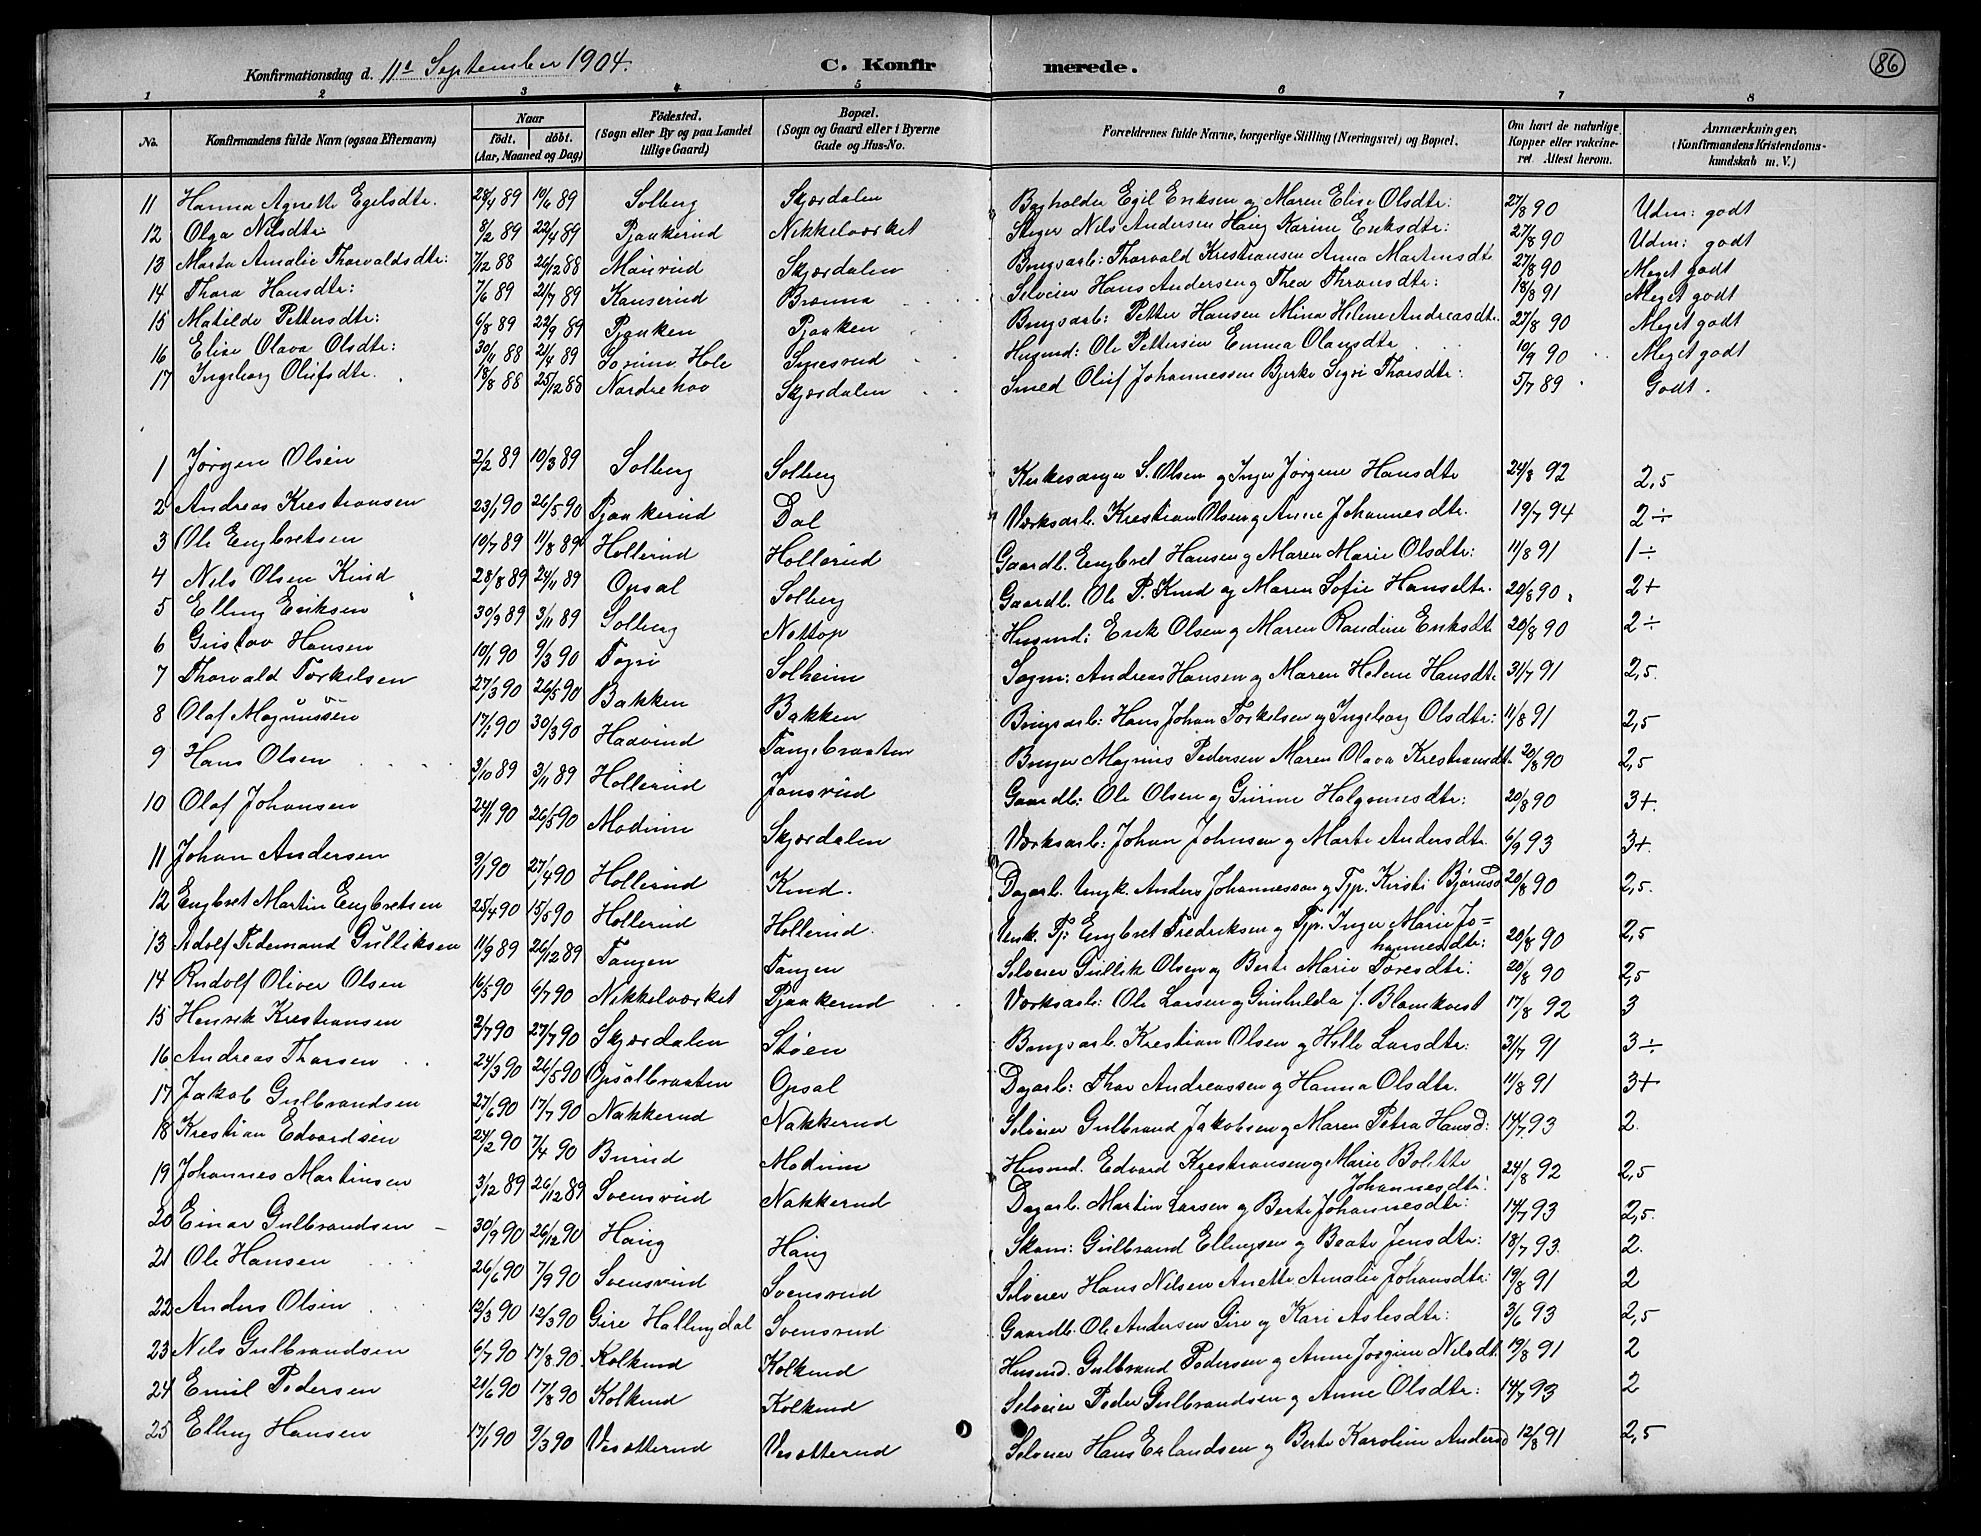 Konfirmationsdag d. 11te September 1904. C. Konfirmerede. 86
1 2 3 4 5 6 7 8
No. Konfirmandens fulde Navn (ogsaa Efternavn) Naar født. døbt. (Aar, Maaned og Dag) Fødested. (Sogn eller By og paa Landet tillige Gaard) Bopæl. (Sogn og Gaard eller i Byerne Gade og Hus-No. Forældrenes fulde Navne, borgerlige Stilling (Næringsvei) og Bopæl. Om havt de naturlige Kopper eller vakcineret. Attest herom. Anmærkninger, (Konfirmandens Kristendomskundskab m. V.)
11 Hanna Agnette Egelsdtr. 28/4 89 10/6 89 Solberg Skjærdalen Egil Eriksen og Maren Elise Olsdtr: 27/8 90 Udm: godt
12 Olga Nilsdtr 8/2 89 22/4 89 Pjaakerud Nikkelværket Nils Andersen Haug Karine Eriksdtr: 27/8 90 Udm: godt
13 Marta Amalie Thorvaldsdtr: 7/12 88 26/12 88 Maurud Skjærdalen Brugsarb: Thorvald Kristiansen Anna Martinsdt 27/8 90 Meget godt
14 Thora Hansdtr: 7/6 89 21/7 89 Kanserud Brønna Selveier Hans Andersen og Thea Thronsdtr: 18/8 91 Meget godt
15 Matilde Pettersdtr: 6/8 89 22/9 89 Pjaaken Pjaaken Brugsarb: Petter Hansen Mina Helene Andreasdtr. 27/8 90 Meget godt
16 Elise Olava Olsdtr: 30/11 88 21/4 89 Hole Smesrud Husmd: Ole Pettersen Emma Olausdtr 10/9 90 Meget godt
17 Ingeborg Olufsdtr. 18/8 88 25/12 88 Norderhov Skjærdalen Smed Oluf Johannessen Bjerke Sigri Thorsdtr: 5/7 89 Godt.
1 Jørgen Olsen 2/2 89 10/3 89 Solberg Solberg Kirkesanger S. Olsen og Inger Jørgine Hansdtr 24/8 92 2,5
2 Andreas Kristiansen 23/1 90 26/5 90 Pjaakerud Dal Værksarb. Krestian Olsen og Anne Johannesdtr. 19/7 94 2÷
3 Ole Engbretsen 10/7 89 11/8 89 Hollerud Hollerud Gaardb. Engbret Hansen og Maren Marie Olsdtr: 11/8 91 1÷
4 Nils Olsen Knud 28/8 89 24/11 89 Opsal Solberg Gaardb. Ole P. Knud og Maren Sofie Hansdtr. 20/8 90 2+
5 Elling Eriksen 30/9 89 3/11 89 Solberg Nottop Husmd: Erik Olsen og Maren Randine Eriksdt. 20/8 90 2÷
6 Gustav Hansen 10/1 90 9/3 90 Togri Solheim Sogn: Andreas Hansen og Maren Helene Hansdt. 31/7 91 2,5.
7 Thorvald Torkelsen 27/3 90 26/5 90 Bakken Bakken Brugsarb: Hans Johan Torkelsen og Ingeborg Olsdtr: 11/8 91 2,5
8 Olaf Magnussen 17/1 90 30/3 90 Haavind Tangebraaten Bruger Magnus Pedersen Maren Olava Krestiansdt. 20/8 90 2,5
9 Hans Olsen 3/10 89 3/11 89 Hollerud Jonsrud Gaardb: Ole Olsen og Gurine Halgrimsdtr: 20/8 90 3+.
10 Olaf Johansen 24/1 90 26/5 90 Modum Skjærdalen Værksarb: Johan Johnsen og Marte Andersdtr. 6/9 93 3+.
11 Johan Andersen 9/1 90 27/4 90 Hollerud Knud. Dagarb. Ungk. Anders Johannesson og Pjp. Kirsti Bjørnsd 20/8 90 2,5.
12 Engbret Martin Engbretsen 25/4 90 15/5 90 Hollerud Hollerud. Unk. Pj: Engbret Fredriksen og Pjp. Inger Marie Jo=
hannesdtr: 20/8 90 2,5
13 Adolf Tidemand Gulliksen 11/9 89 26/12 89 Tangen Tangen Selveier Gullik Olsen og Berte Marie Toresdtr: 20/8 90 2,5
14 Rudolf Oliver Olsen 16/5 90 6/7 90 Nikkelværket Pjaakerud Værksarb: Ole Larsen og Gunhilda f. Blomkvist 17/8 92 3
15 Henrik Krestiansen 2/7 90 27/7 90 Skjærdalen Støen Brugsarb. Krestian Olsen og Helle Larsdtr: 31/7 91 3÷
16 Andreas Thorsen 24/3 90 26/5 90 Opsalbraaten Opsal Dagarb: Thor Andreassen og Hanna Olsdtr. 11/8 91 3+
17 Jakob Gulbrandsen 27/6 90 17/7 90 Nakkerud Nakkerud Selveier Gulbrand Jakobsen og Maren Petra Hansd: 14/7 93 2.
18 Krestian Edvardsen 24/2 90 7/4 90 Burud Modum Husmd. Edvard Krestiansen og Marie Bolette
Johannesdtr: 24/8 92 2,5
19 Johannes Martinsen 3/12 89 26/12 89 Svensrud Nakkerud Dagarb. Martin Larsen og Berte Johannesdtr: 14/7 93 2,5.
20 Einar Gulbrandsen 30/9 90 26/12 90 Haug Haug Skom: Gulbrand Ellingsen og Beate Jensdtr: 18/7 93. 2.
21 Ole Hansen 26/6 90 7/9 90 Svensrud Svensrud Selveier Hans Nilsen Anette Amalie Johansdtr: 19/8 91 2
22 Anders Olsen 12/3 90 12/3 90 Gire Hallingdal Svensrud Gaardb. Ole Andersen Gire og Kari Aslesdtr: 3/6 93 2,5
23 Nils Gulbrandsen 6/7 90 17/8 90. Kolknud Kolknud Husmd. Gulbrand Pedersen og Anne Jørgine Nilsdt. 19/8 91 2
24 Emil Pedersen 21/6 90 17/8 90 Kolknud Kolknud Selveier Peder Gulbrandsen og Anne Olsdtr: 14/7 93 2
25 Elling Hansen 17/1 90 9/3 90 Vesotterud Vesotterud Selveier Hans Erlandsen og Berte Karoline Andersd 12/8 91 2,5